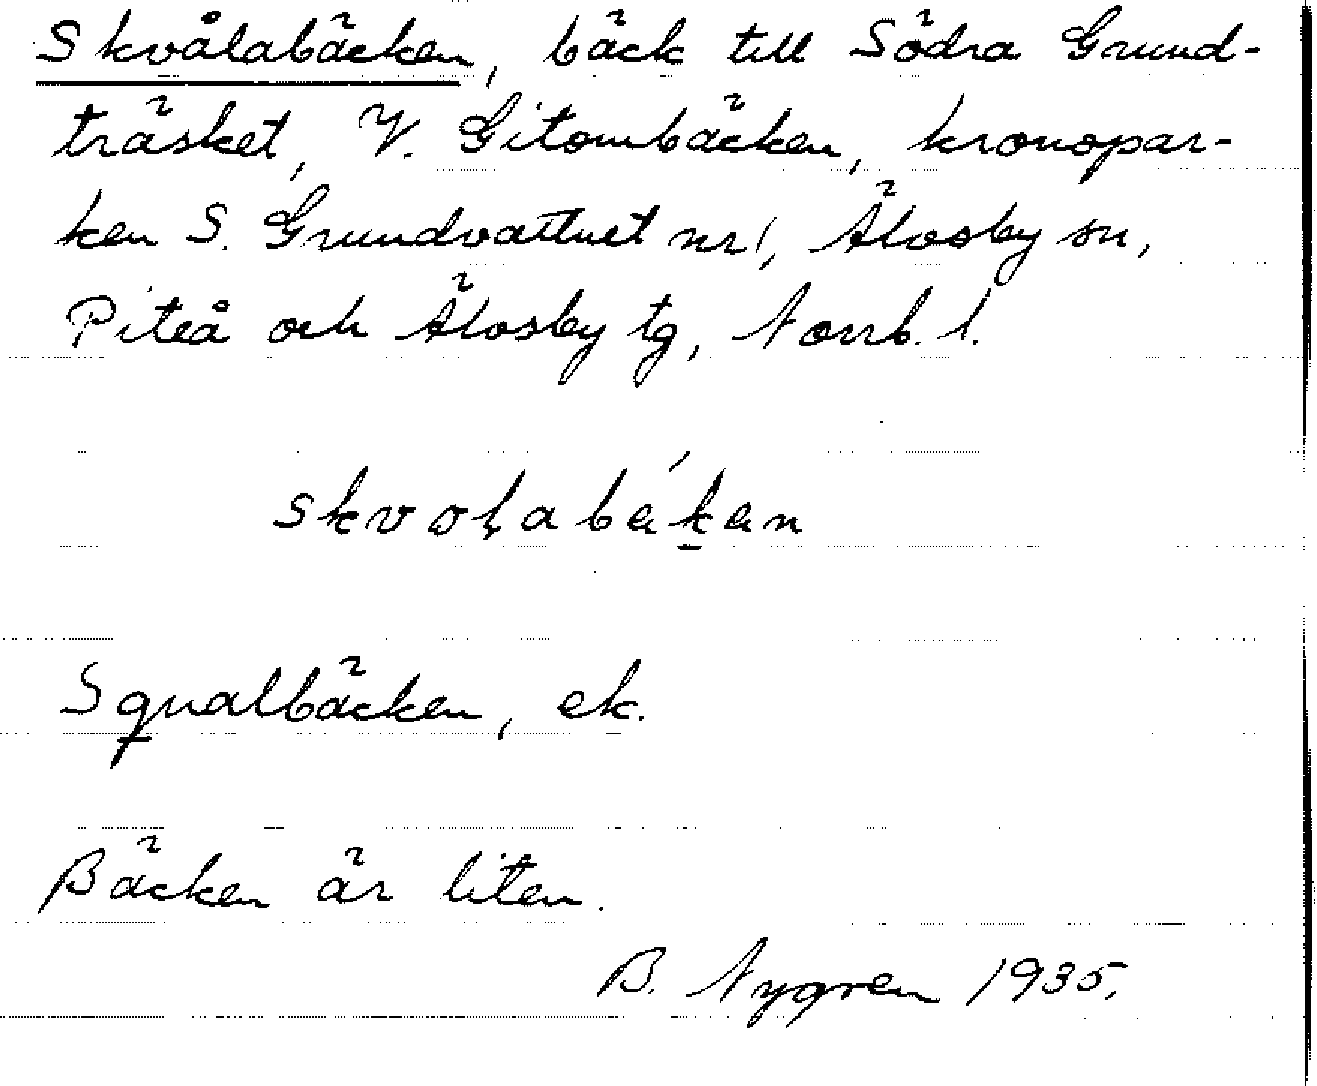 Skvålabäcken, bäck till Södra Grund-
träsket, V. Gitombäcken, kronopar-
ken S. Grundvattnet nr 1, Älvsby sn,
Piteå och Älvsby tg, Norrb. l.
skvolabekan
Squalbäcken, ek.
Bäcken är liten.
B. Nygren 1935.